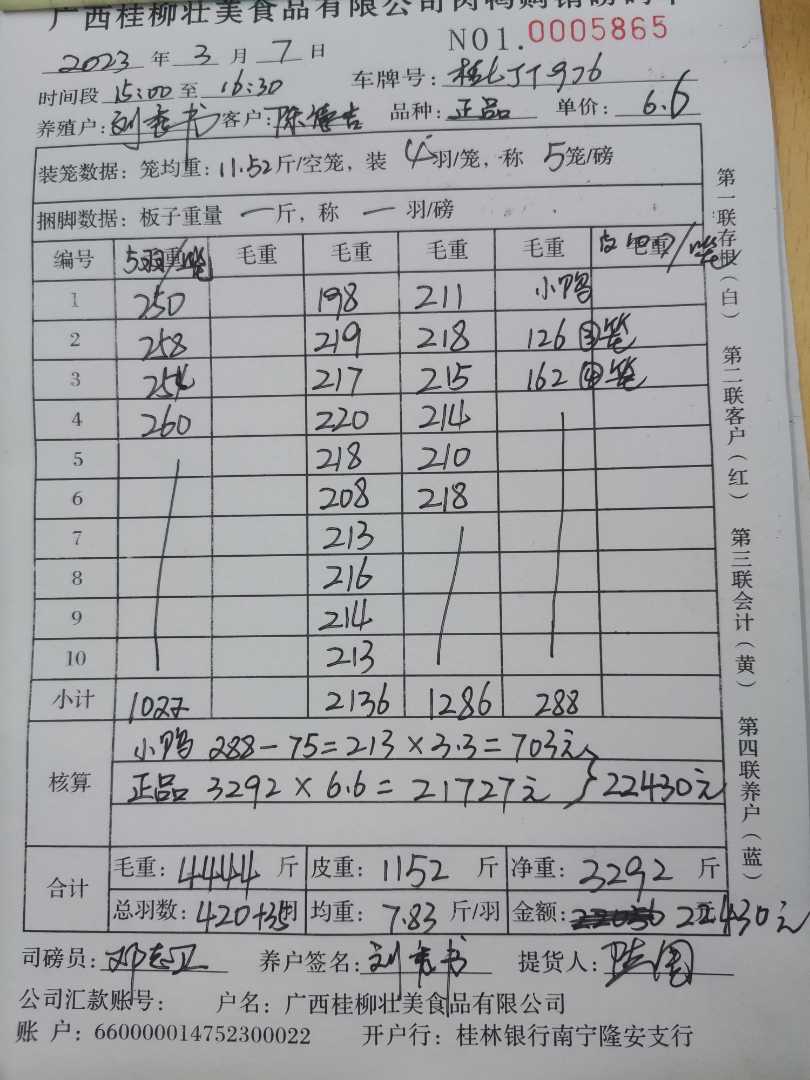 广西桂柳壮美食品有限公司肉鸭购销磅码单
NO1.0005865
2023 年 3 月 7 日
时间段 15:00 至 16:30 车牌号: 桂
养殖户: 刘 书 客户: 陈德吉 品种: 正品 单价: 6.6
装笼数据: 笼均重: 11.52斤/空笼, 装 4羽/笼, 称 5笼/磅
捆脚数据: 板子重量 一斤, 称 一 羽/磅
编号 5羽/笼 毛重 毛重 毛重 毛重 毛重
1 250 198 211 小鸭
2 258 219 218 126 ③笼
3 254 217 215 162 ④笼
4 260 220 214
5 218 210
6 208 218
7 213
8 216
9 214
10 213
小计 1022 2136 1286 288
核算 小鸭 288-75=213×3.3=703元
正品 3292×6.6=21727元 22430元
合计 毛重: 4444 斤 皮重: 1152 斤 净重: 3292 斤
总羽数: 420+35羽 均重: 7.83 斤/羽 金额: 22430元
司磅员: 邓志卫 养户签名: 刘 书 提货人:
公司汇款账号: 户名: 广西桂柳壮美食品有限公司
账 户: 660000014752300022 开户行: 桂林银行南宁隆安支行
第一联存根(白) 第二联客户(红) 第三联会计(黄) 第四联养户(蓝)